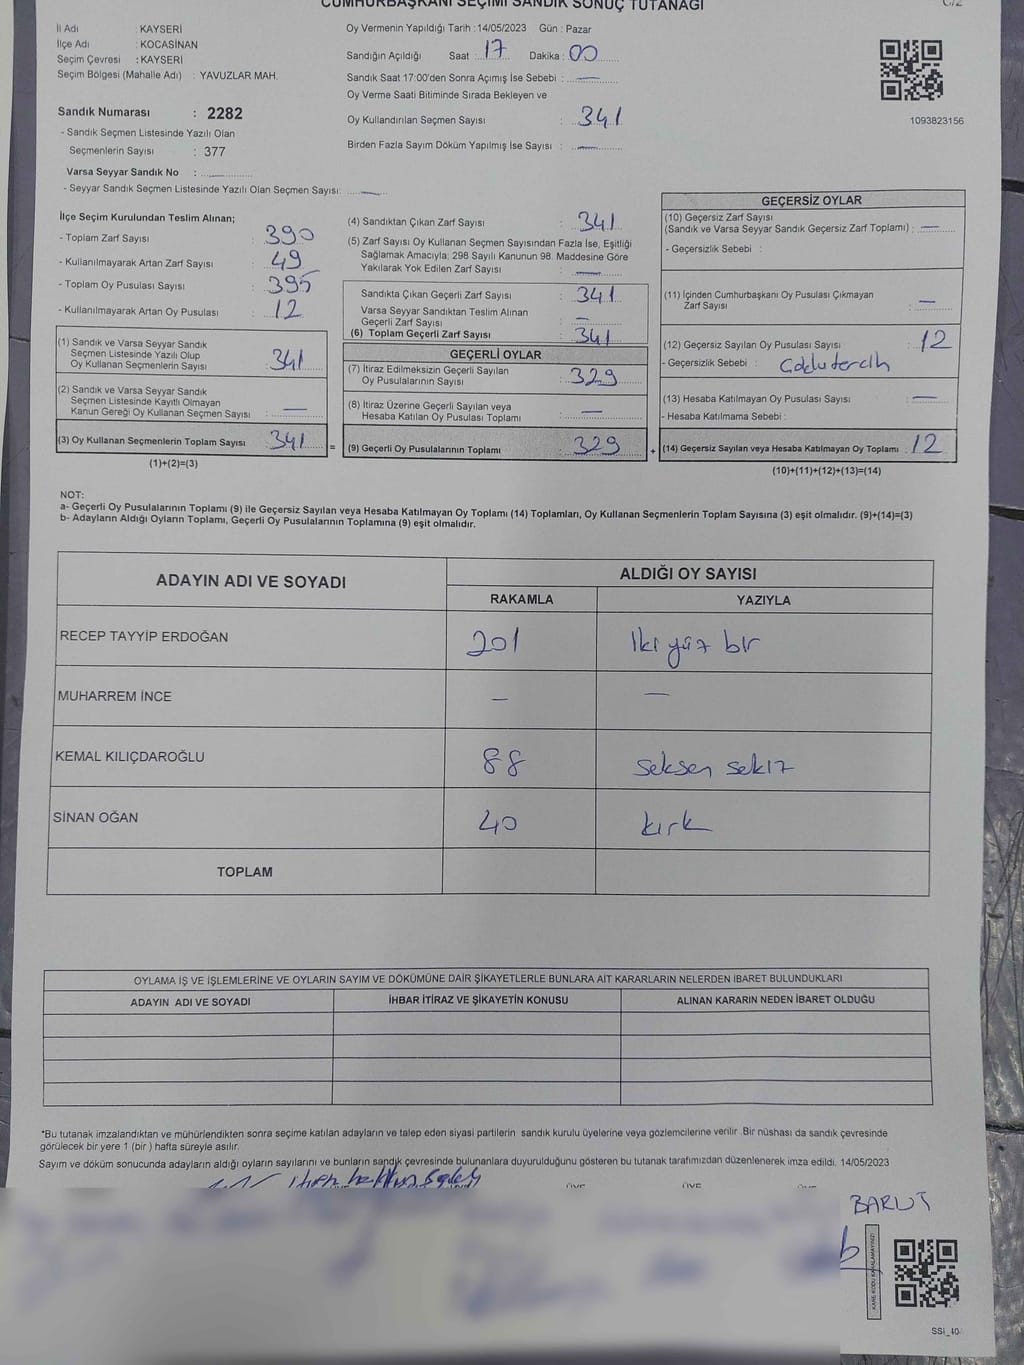 CUMHURBAŞKANI SEÇİMİ SANDIK SONUÇ TUTANAĞI
C/2
İl Adı : KAYSERİ
İlçe Adı : KOCASİNAN
Seçim Çevresi : KAYSERİ
Seçim Bölgesi (Mahalle Adı) : YAVUZLAR MAH.
Sandık Numarası : 2282
- Sandık Seçmen Listesinde Yazılı Olan
Seçmenlerin Sayısı : 377
Varsa Seyyar Sandık No : —
- Seyyar Sandık Seçmen Listesinde Yazılı Olan Seçmen Sayısı: —
Oy Vermenin Yapıldığı Tarih : 14/05/2023 Gün : Pazar
Sandığın Açıldığı Saat : 17 Dakika : 00
Sandık Saat 17:00'den Sonra Açımış İse Sebebi : —
Oy Verme Saati Bitiminde Sırada Bekleyen ve
Oy Kullandırılan Seçmen Sayısı : 341
Birden Fazla Sayım Döküm Yapılmış İse Sayısı : —
1093823156
İlçe Seçim Kurulundan Teslim Alınan;
- Toplam Zarf Sayısı : 390
- Kullanılmayarak Artan Zarf Sayısı : 49
- Toplam Oy Pusulası Sayısı : 395
- Kullanılmayarak Artan Oy Pusulası : 12
(1) Sandık ve Varsa Seyyar Sandık
Seçmen Listesinde Yazılı Olup
Oy Kullanan Seçmenlerin Sayısı : 341
(2) Sandık ve Varsa Seyyar Sandık
Seçmen Listesinde Kayıtlı Olmayan
Kanun Gereği Oy Kullanan Seçmen Sayısı : —
(3) Oy Kullanan Seçmenlerin Toplam Sayısı : 341 =
(1)+(2)=(3)
(4) Sandıktan Çıkan Zarf Sayısı : 341
(5) Zarf Sayısı Oy Kullanan Seçmen Sayısından Fazla İse, Eşitliği
Sağlamak Amacıyla; 298 Sayılı Kanunun 98. Maddesine Göre
Yakılarak Yok Edilen Zarf Sayısı : —
Sandıkta Çıkan Geçerli Zarf Sayısı : 341
Varsa Seyyar Sandıktan Teslim Alınan
Geçerli Zarf Sayısı : —
(6) Toplam Geçerli Zarf Sayısı : 341
GEÇERLİ OYLAR
(7) İtiraz Edilmeksizin Geçerli Sayılan
Oy Pusulalarının Sayısı : 329
(8) İtiraz Üzerine Geçerli Sayılan veya
Hesaba Katılan Oy Pusulası Toplamı : —
(9) Geçerli Oy Pusulalarının Toplamı : 329 +
GEÇERSİZ OYLAR
(10) Geçersiz Zarf Sayısı
(Sandık ve Varsa Seyyar Sandık Geçersiz Zarf Toplamı) : —
- Geçersizlik Sebebi :
(11) İçinden Cumhurbaşkanı Oy Pusulası Çıkmayan
Zarf Sayısı : —
(12) Geçersiz Sayılan Oy Pusulası Sayısı : 12
- Geçersizlik Sebebi :
(13) Hesaba Katılmayan Oy Pusulası Sayısı : —
- Hesaba Katılmama Sebebi :
(14) Geçersiz Sayılan veya Hesaba Katılmayan Oy Toplamı : 12
(10)+(11)+(12)+(13)=(14)
NOT:
a- Geçerli Oy Pusulalarının Toplamı (9) ile Geçersiz Sayılan veya Hesaba Katılmayan Oy Toplamı (14) Toplamları, Oy Kullanan Seçmenlerin Toplam Sayısına (3) eşit olmalıdır. (9)+(14)=(3)
b- Adayların Aldığı Oyların Toplamı, Geçerli Oy Pusulalarının Toplamına (9) eşit olmalıdır.
ADAYIN ADI VE SOYADI
ALDIĞI OY SAYISI
RAKAMLA YAZIYLA
RECEP TAYYİP ERDOĞAN 201 iki yüz bir
MUHARREM İNCE — —
KEMAL KILIÇDAROĞLU 88 seksen sekiz
SİNAN OĞAN 40 kırk
TOPLAM
OYLAMA İŞ VE İŞLEMLERİNE VE OYLARIN SAYIM VE DÖKÜMÜNE DAİR ŞİKAYETLERLE BUNLARA AİT KARARLARIN NELERDEN İBARET BULUNDUKLARI
ADAYIN ADI VE SOYADI İHBAR İTİRAZ VE ŞİKAYETİN KONUSU ALINAN KARARIN NEDEN İBARET OLDUĞU
*Bu tutanak imzalandıktan ve mühürlendikten sonra seçime katılan adayların ve talep eden siyasi partilerin sandık kurulu üyelerine veya gözlemcilerine verilir .Bir nüshası da sandık çevresinde
görülecek bir yere 1 (bir ) hafta süreyle asılır.
Sayım ve döküm sonucunda adayların aldığı oyların sayılarını ve bunların sandık çevresinde bulunanlara duyurulduğunu gösteren bu tutanak tarafımızdan düzenlenerek imza edildi. 14/05/2023
ÜYE ÜYE ÜYE
BARUT
KARE KODU KARALAMAYINIZ!
SSİ_40